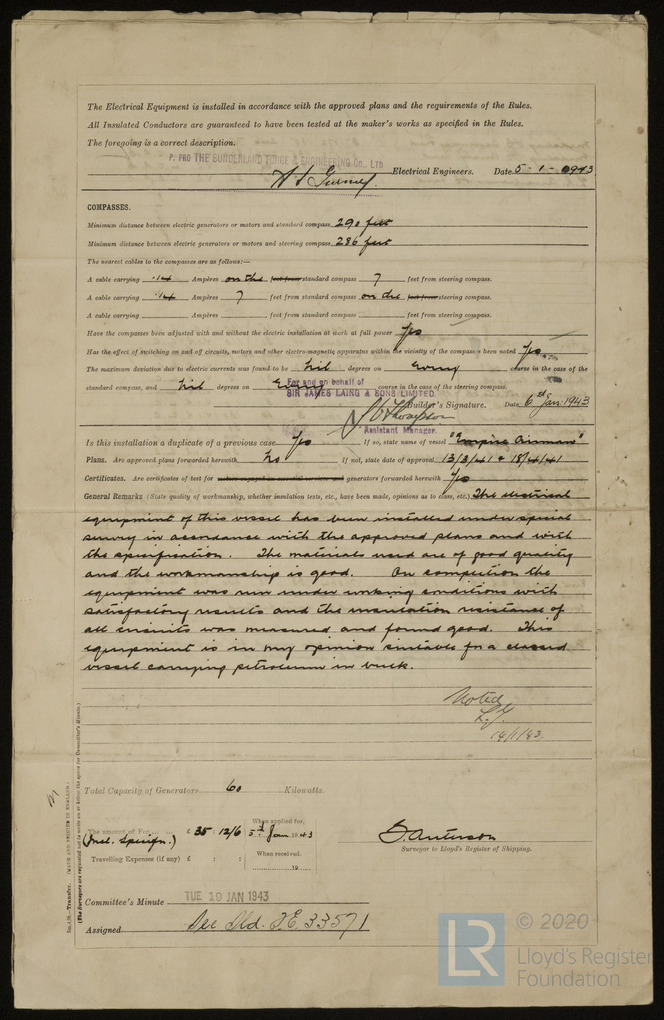 The Electrical Equipment is installed in accordance with the approved plans and the requirements of the Rules.
All Insulated Conductors are guaranteed to have been tested at the maker's works as specified in the Rules.
The foregoing is a correct description.
P. PRO THE SUNDERLAND FORGE & ENGINEERING CO., LTD
Electrical Engineers. Date 5-1-1943
COMPASSES.
Minimum distance between electric generators or motors and standard compass 290 feet
Minimum distance between electric generators or motors and steering compass 286 feet
The nearest cables to the compasses are as follows:—
A cable carrying .14 Ampères on the feet from standard compass 7 feet from steering compass.
A cable carrying .14 Ampères 7 feet from standard compass on the feet from steering compass.
A cable carrying Ampères feet from standard compass feet from steering compass.
Have the compasses been adjusted with and without the electric installation at work at full power Yes
Has the effect of switching on and off circuits, motors and other electro-magnetic apparatus within the vicinity of the compasses been noted Yes
The maximum deviation due to electric currents was found to be Nil degrees on Every course in the case of the
standard compass, and Nil degrees on Every course in the case of the steering compass.
For and on behalf of
SIR JAMES LAING & SONS LIMITED.
Builder's Signature. Date 6th Jan: 1943
Assistant Manager.
Is this installation a duplicate of a previous case Yes If so, state name of vessel "Empire Airman"
Plans. Are approved plans forwarded herewith No If not, state date of approval 13/3/41 & 18/4/41
Certificates. Are certificates of test for generators forwarded herewith Yes
General Remarks (State quality of workmanship, whether insulation tests, etc., have been made, opinions as to class, etc.) The electrical
equipment of this vessel has been installed under special
survey in accordance with the approved plans and with
the specification. The materials used are of good quality
and the workmanship is good. On completion the
equipment was run under working conditions with
satisfactory results and the insulation resistance of
all circuits was measured and found good. This
equipment is in my opinion suitable for a classed
vessel carrying petroleum in bulk.
Noted
14/1/43
Total Capacity of Generators 60 Kilowatts.
The amount of Fee £ 35 : 12/6 When applied for, 5th Jan 1943
(Incl. Specifn.)
Travelling Expenses (if any) £ : : When received, 19
Surveyor to Lloyd's Register of Shipping.
Committee's Minute TUE 19 JAN 1943
Assigned See Sld. F.E. 33571
Transfer. (MADE AND PRINTED IN ENGLAND.)
(The Surveyors are requested not to write on or below the space for Committee's Minute.)
LR © 2020
Lloyd's Register
Foundation